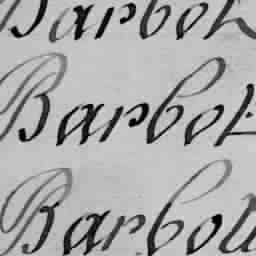 Barbot
Barbot
Barbott